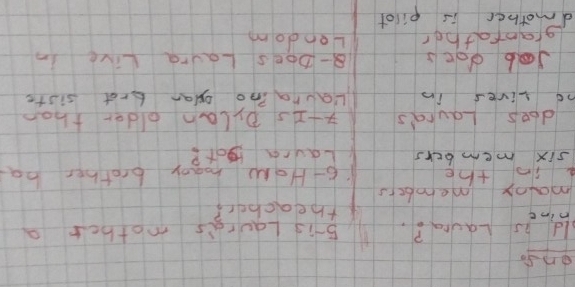 ons
old is Laura?
nine
many members
in the
six members
does Laura's
he Lives in
Job does
granfather
dmother is pilot
5-is Laura's mother a
theacher?
6-How many brother ha
Laura got?
7-Is Dylan older than
Laura
8-Does Laura Live in
London